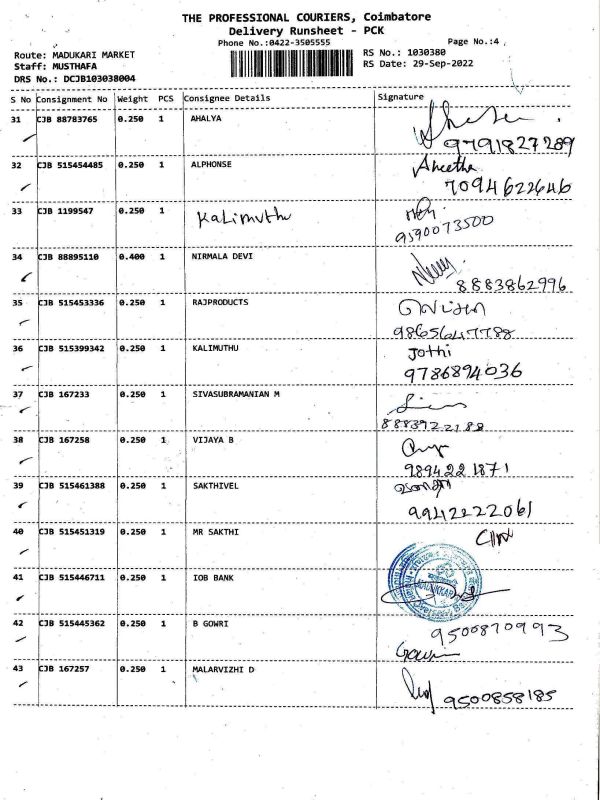 THE PROFESSIONAL COURIERS, Coimbatore
Delivery Runsheet - PCK
Phone No.:0422-3505555 Page No.:4
Route: MADUKARI MARKET RS No.: 1030380
Staff: MUSTHAFA RS Date: 29-Sep-2022
DRS No.: DCJB103038004
S No Consignment No Weight PCS Consignee Details Signature
31 CJB 88783765 0.250 1 AHALYA
9791827289
32 CJB 515454485 0.250 1 ALPHONSE Aneetha
7094622646
33 CJB 1199547 0.250 1 Kalimuthu
9590073500
34 CJB 88895110 0.400 1 NIRMALA DEVI
8883862996
35 CJB 515453336 0.250 1 RAJPRODUCTS
9865647788
36 CJB 515399342 0.250 1 KALIMUTHU Jothi
9786894036
37 CJB 167233 0.250 1 SIVASUBRAMANIAN M
8883922188
38 CJB 167258 0.250 1 VIJAYA B
9894221871
39 CJB 515461388 0.250 1 SAKTHIVEL
9942222061
40 CJB 515451319 0.250 1 MR SAKTHI
41 CJB 515446711 0.250 1 IOB BANK
42 CJB 515445362 0.250 1 B GOWRI 9500870993
Gowri
43 CJB 167257 0.250 1 MALARVIZHI D
9500858185